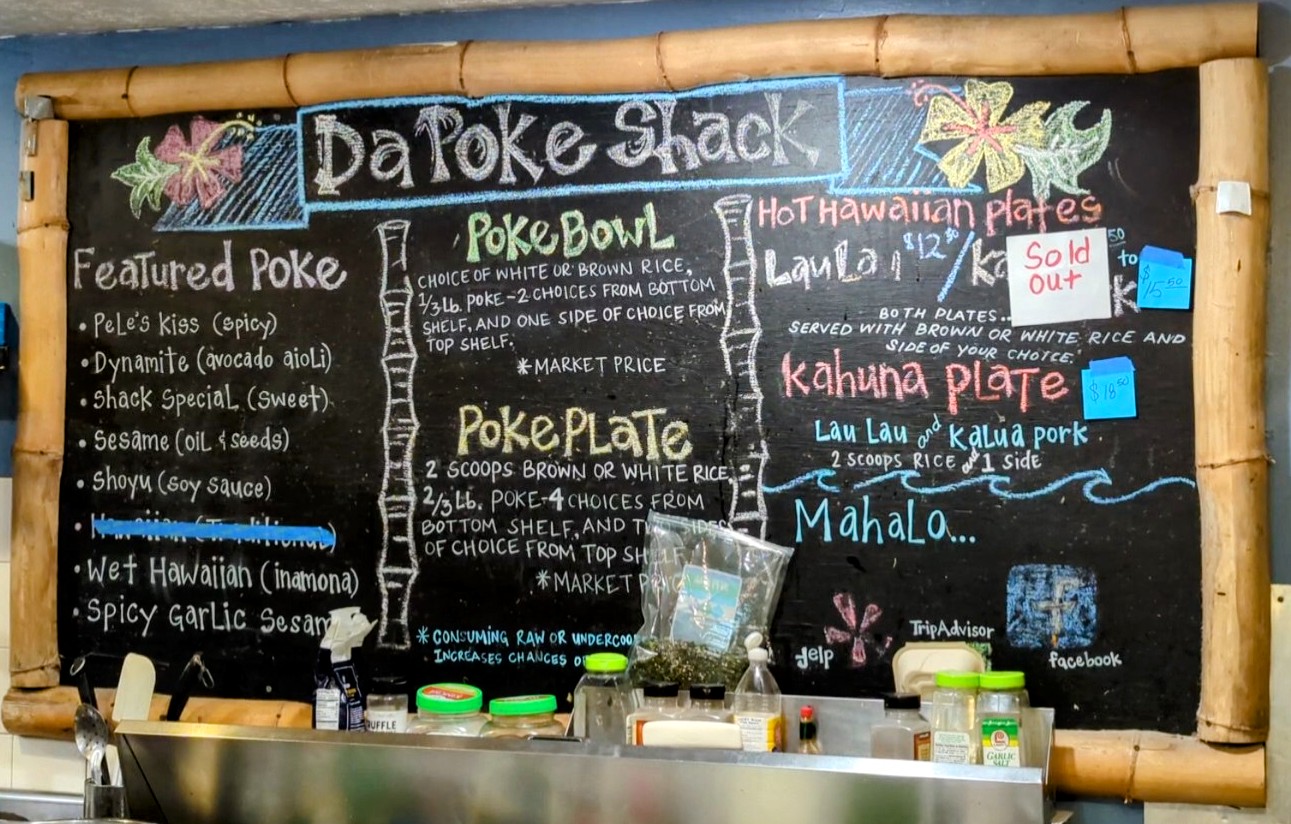 Da Poke Shack
Featured Poke
• Pele's Kiss (spicy)
• Dynamite (avocado aioli)
• Shack Special (sweet)
• Sesame (oil & seeds)
• Shoyu (soy sauce)
• Wet Hawaiian (inamona)
• Spicy Garlic Sesam
Poke Bowl
CHOICE OF WHITE OR BROWN RICE,
1/3 Lb. POKE - 2 CHOICES FROM BOTTOM
SHELF, AND ONE SIDE OF CHOICE FROM
TOP SHELF.
*MARKET PRICE
Poke Plate
2 SCOOPS BROWN OR WHITE RICE,
2/3 Lb. POKE - 4 CHOICES FROM
BOTTOM SHELF, AND SIDES
OF CHOICE FROM TOP SHELF
*MARKET PRICE
* CONSUMING RAW OR UNDERCOO
INCREASES CHANCES OF
Hot Hawaiian Plates
Lau Lau $12.50 / Ka
Sold
out
50
to
$15.50
k
BOTH PLATES...
SERVED WITH BROWN OR WHITE RICE AND
SIDE OF YOUR CHOICE.
Kahuna Plate
$18.50
Lau Lau and Kalua Pork
2 SCOOPS RICE and 1 SIDE
Mahalo...
yelp
TripAdvisor
f
facebook
UFFLE
GARLIC
SALT